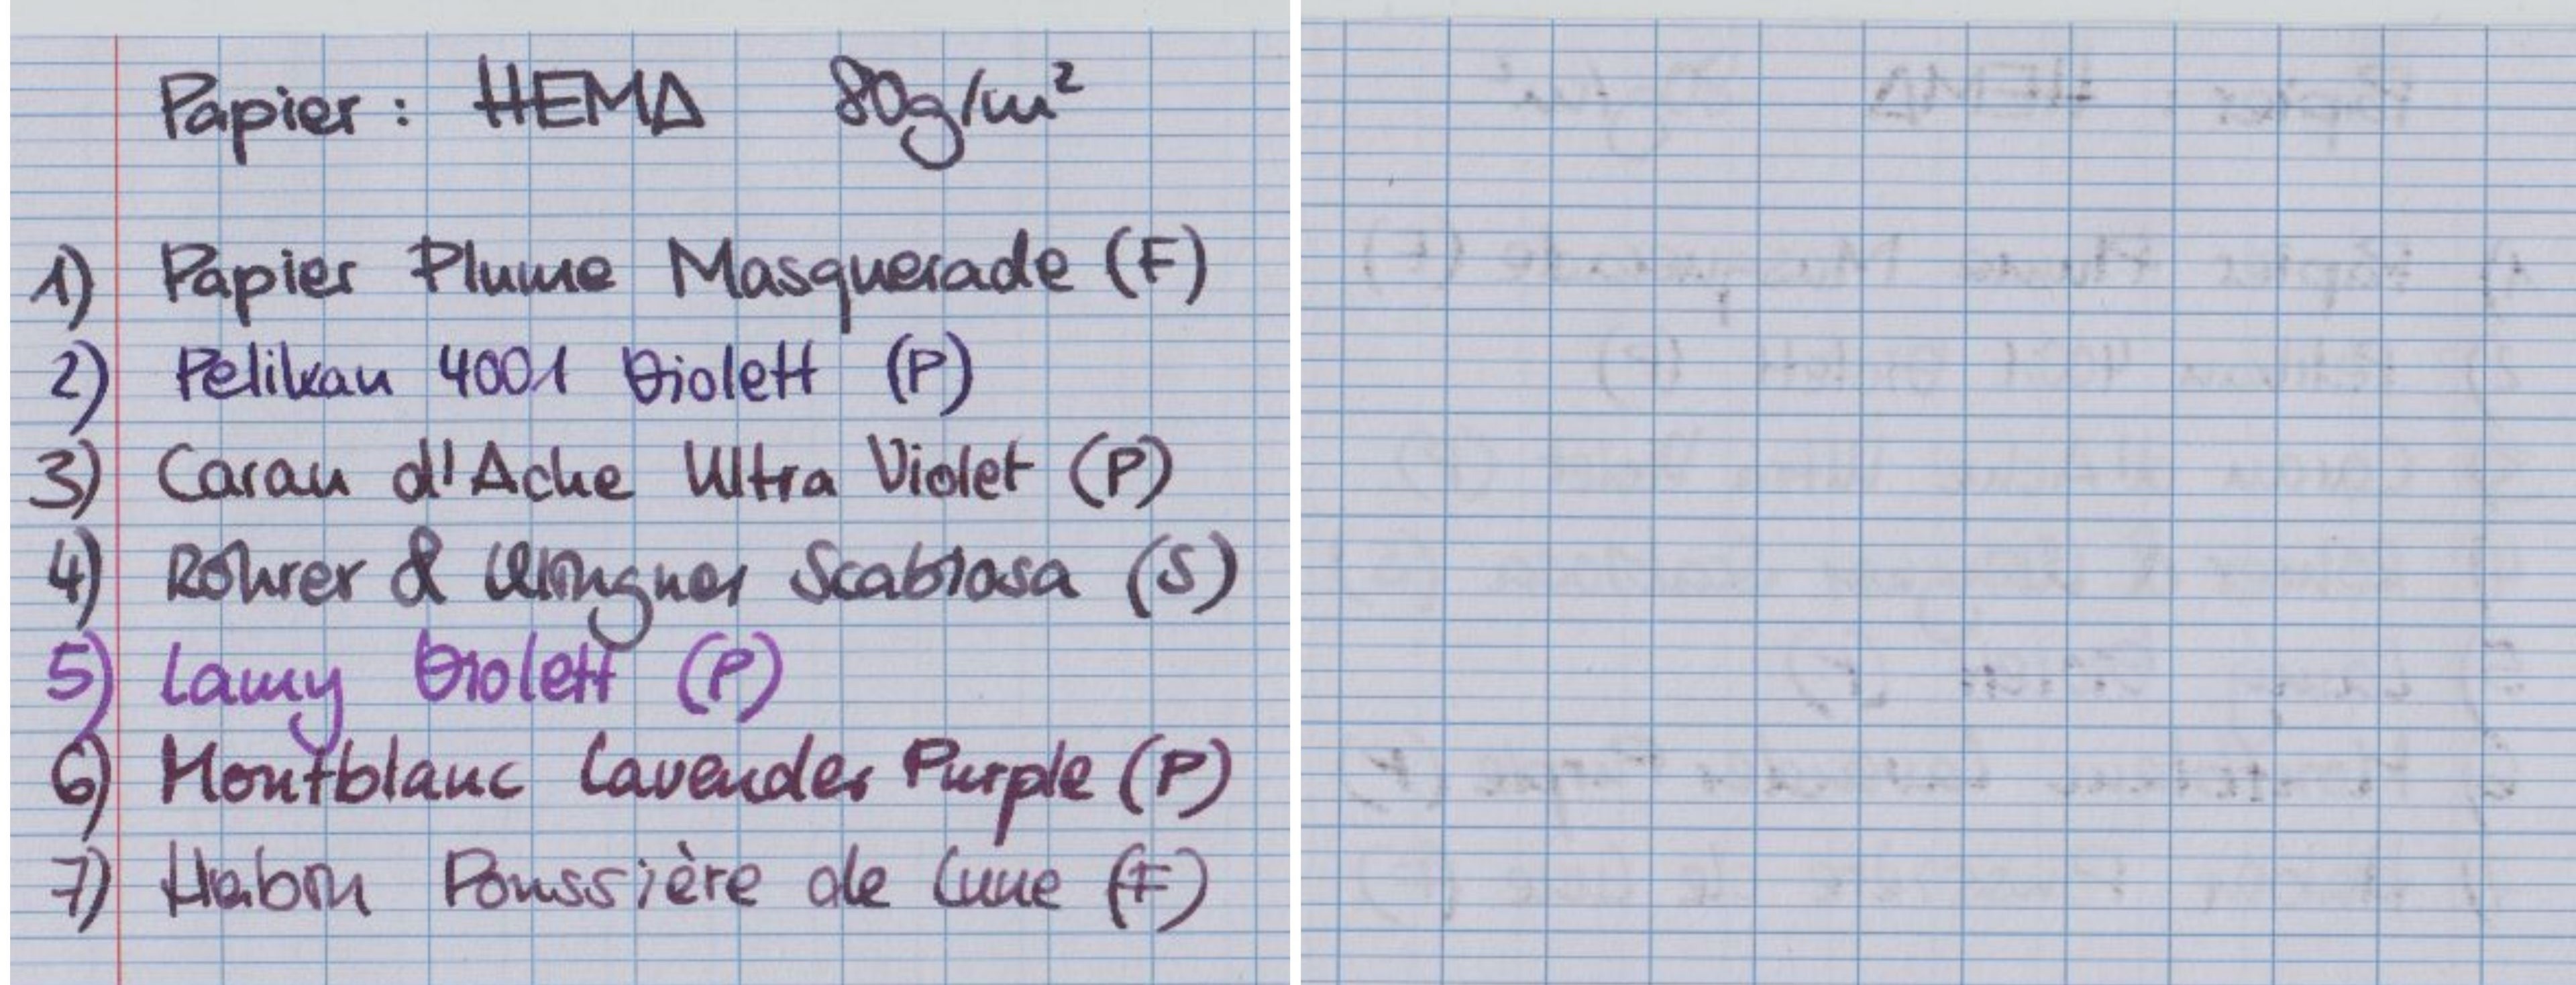 Papier: HEMA 80g/m²
1) Papier Plume Masquerade (F)
2) Pelikan 4001 Violett (P)
3) Caran d'Ache Ultra Violet (P)
4) Rohrer & Klingner Scabiosa (S)
5) Lamy Violett (P)
6) Montblanc Lavender Purple (P)
7) Herbin Poussière de Lune (F)